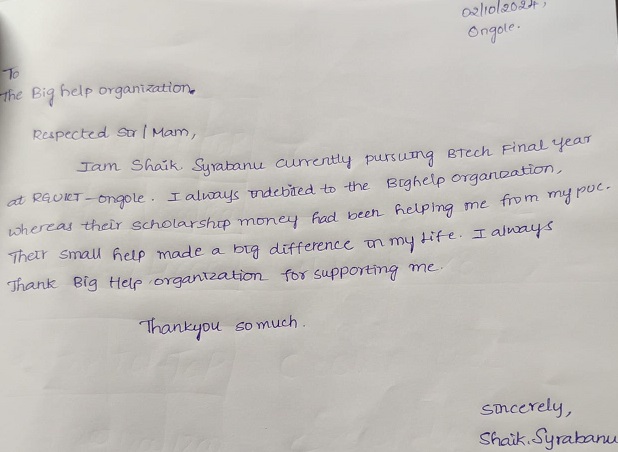 02/10/2024,
Ongole.
To
The Big help organization.
Respected Sir / Mam,
Iam Shaik. Syrabanu currently pursuing BTech Final year
at RGUKT-ongole. I always indebited to the Bighelp organization,
whereas their scholarship money had been helping me from my puc.
Their small help made a big difference in my life. I always
Thank Big Help organization for supporting me.
Thankyou so much.
sincerely,
Shaik.Syrabanu